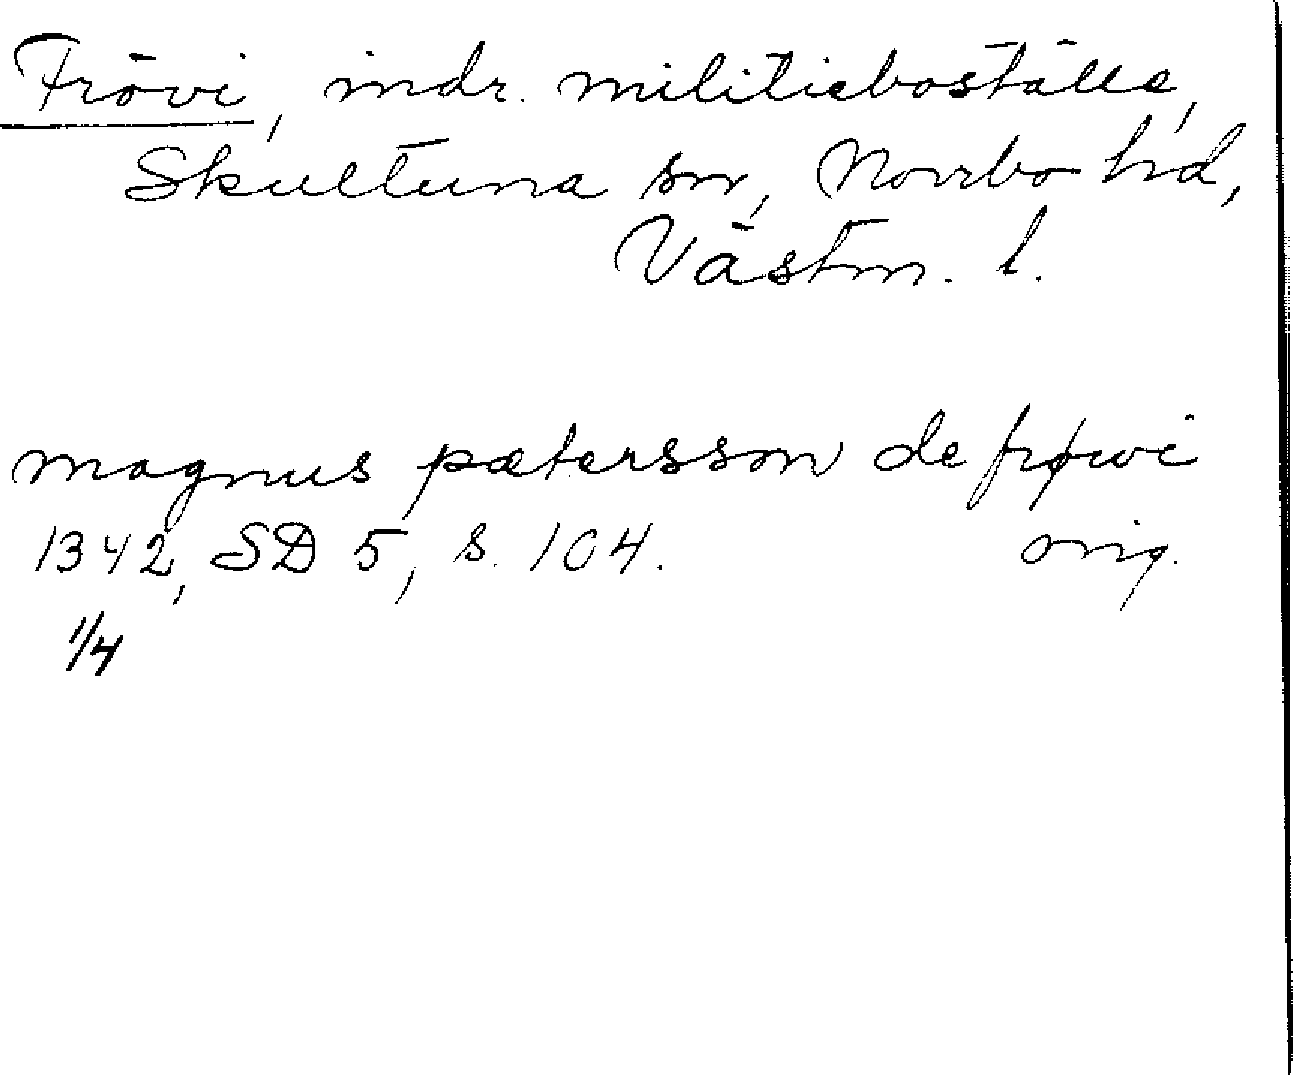 Frövi, indr. militieboställe,
Skultuna sn, Norrbo hd,
Västm. l.
magnus pætersson de frøwi
1342, SD 5, s. 104. orig.
1/4